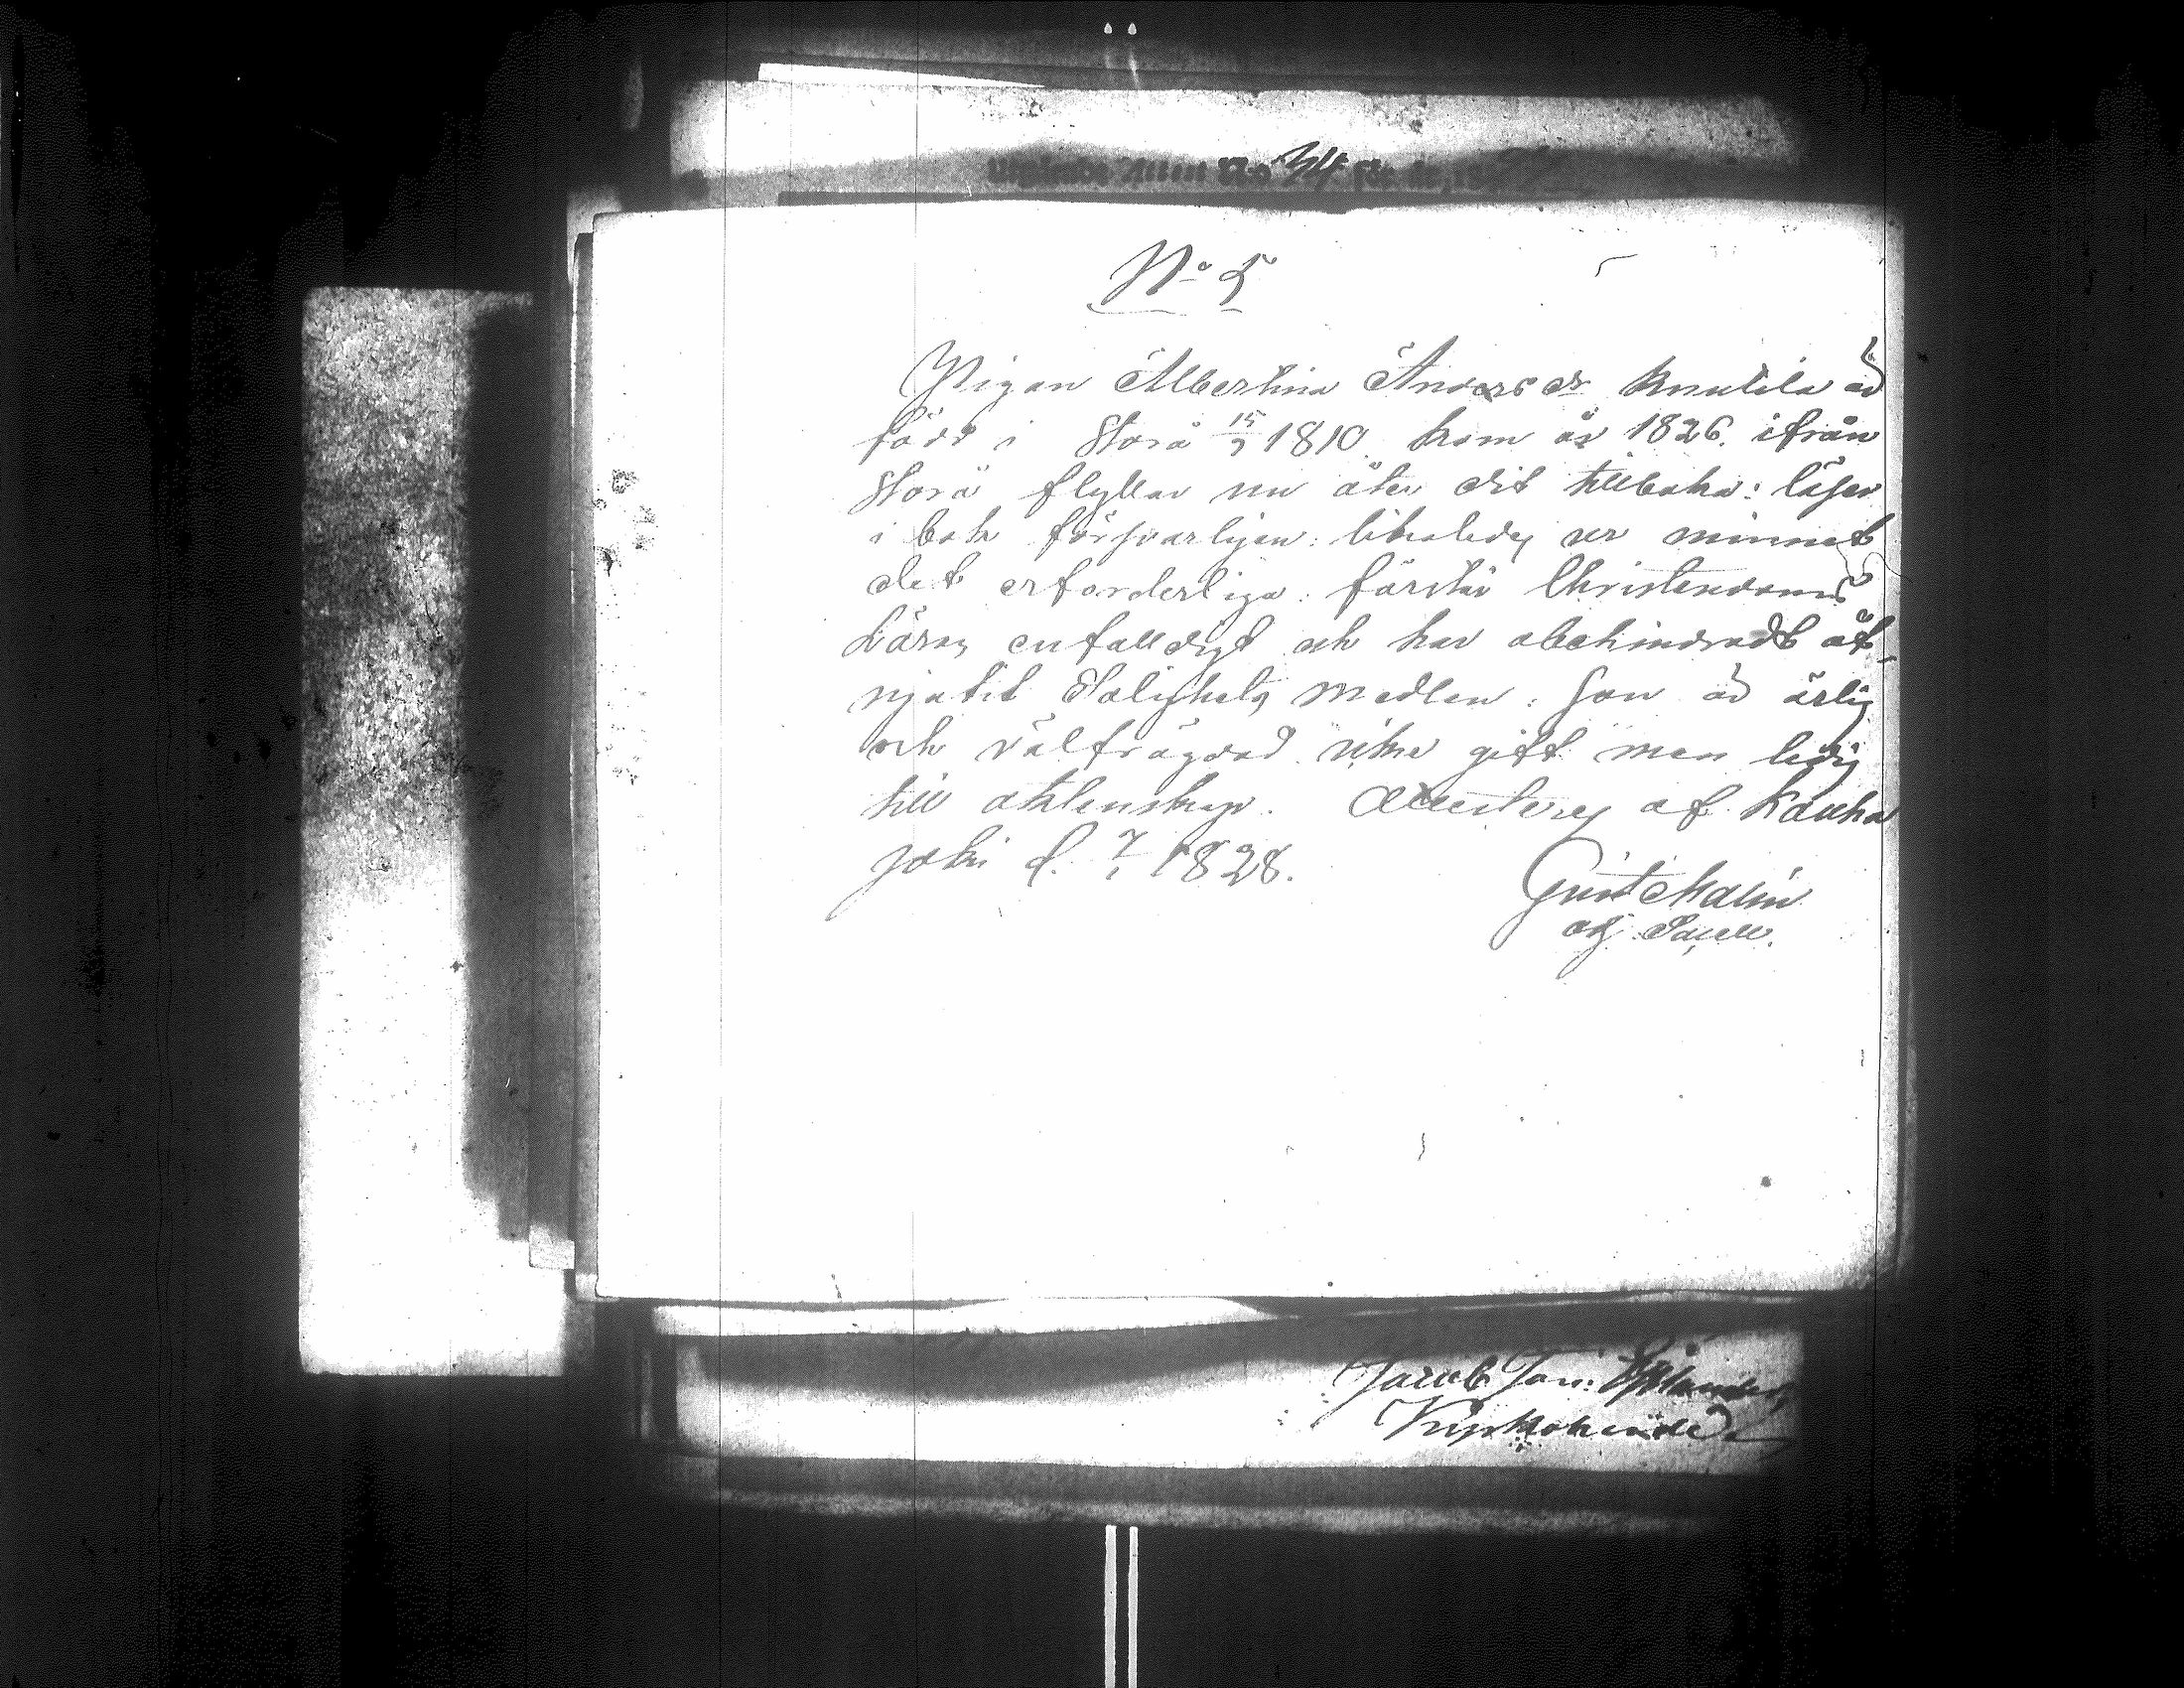 No 34
No 5
Pigan Albertina Anders dr Knutila är
född i Storå 15/9 1810 kom år 1826. ifrån
Storå flyttar nu åter dit tillbaka: läser
i bok försvarligen: likaledes ur minnet
det erforderliga: förstår Christendoms
Läran enfalldigt och har obehindradt åt-
njutit Salighets Medlen. Hon är ärlig
och välfrägdad icke gift men ledig
till äktenskap. Attesteras af Kauha
joki d. 7/1 1828.
Gust Malin
adj. Sacell.
Jacob Joh: